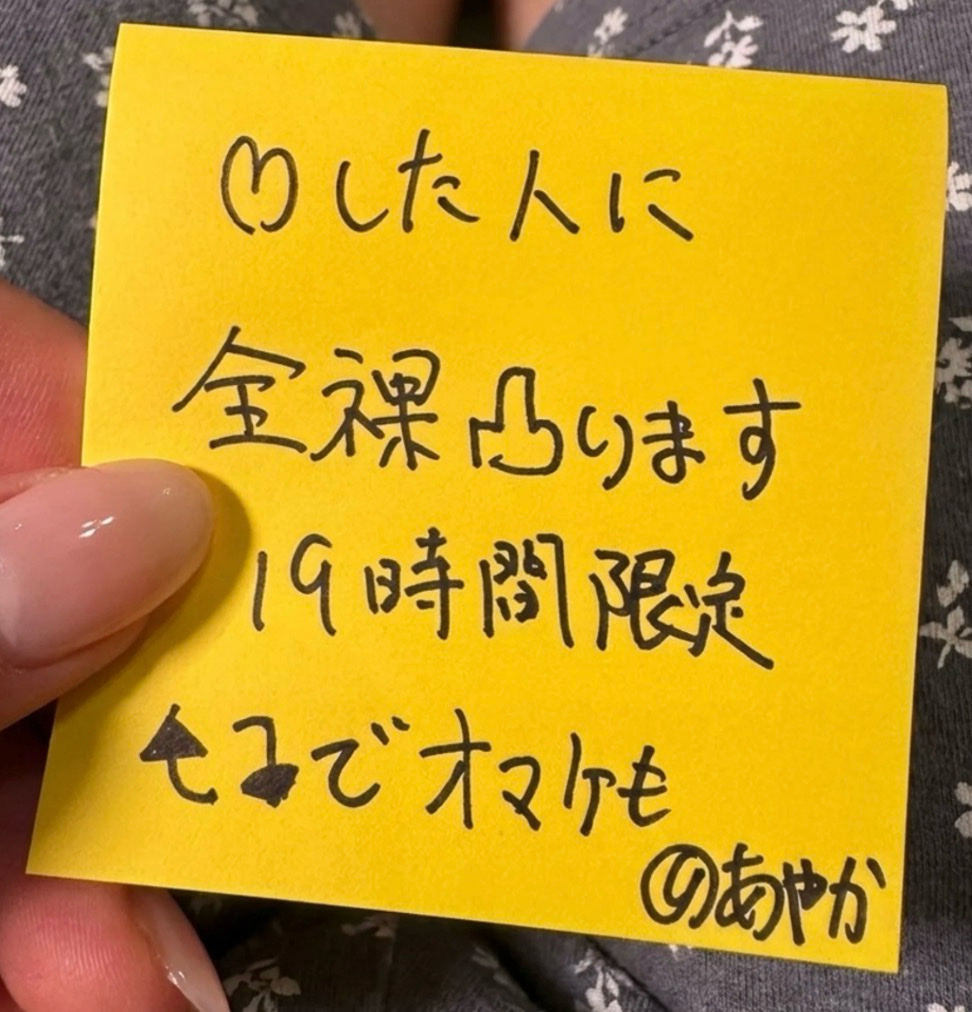 ♡した人に
全裸凸ります
19時間限定
でオマケも
@あやか